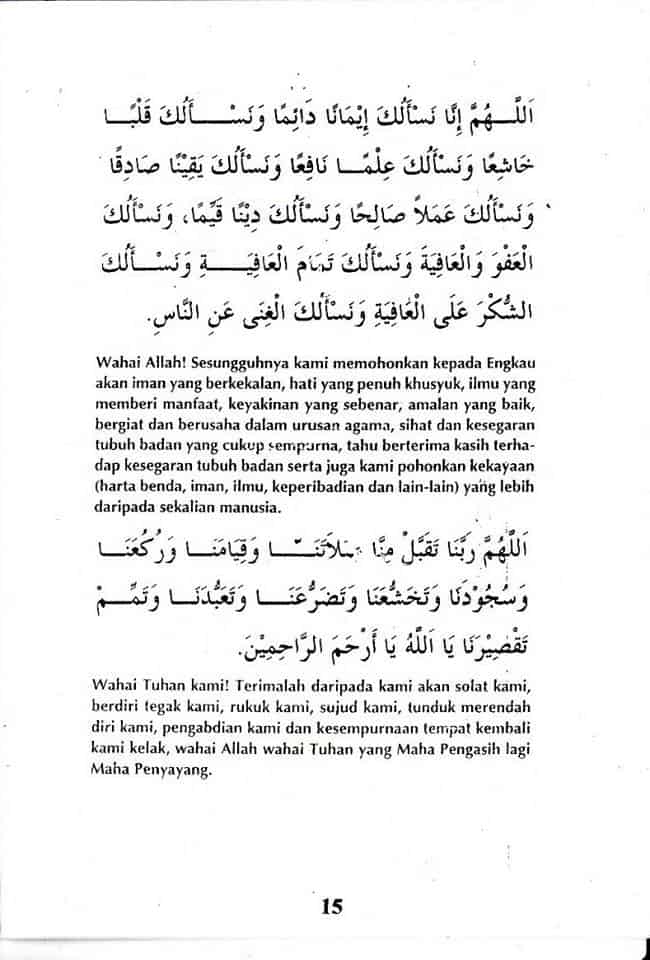 اَللَّـهُمَّ إِنَّا نَسْأَلُكَ إِيْمَانًا دَائِمًا وَنَسْـــأَلُكَ قَلْبًـــا
خَاشِعًا وَنَسْأَلُكَ عِلْمًــا نَافِعًا وَنَسْأَلُكَ يَقِيْنًا صَادِقًا
وَنَسْأَلُكَ عَمَلاً صَالِحًا وَنَسْأَلُكَ دِيْنًا قَيِّمًا، وَنَسْأَلُكَ
الْعَفْوَ وَالْعَافِيَةَ وَنَسْأَلُكَ تَمَامَ الْعَافِيَـــةِ وَنَسْــأَلُكَ
الشُّكْرَ عَلَى الْعَافِيَةِ وَنَسْأَلُكَ الْغِنَى عَنِ النَّاسِ.
Wahai Allah! Sesungguhnya kami memohonkan kepada Engkau
akan iman yang berkekalan, hati yang penuh khusyuk, ilmu yang
memberi manfaat, keyakinan yang sebenar, amalan yang baik,
bergiat dan berusaha dalam urusan agama, sihat dan kesegaran
tubuh badan yang cukup sempurna, tahu berterima kasih terha-
dap kesegaran tubuh badan serta juga kami pohonkan kekayaan
(harta benda, iman, ilmu, keperibadian dan lain-lain) yang lebih
daripada sekalian manusia.
اَللَّهُمَّ رَبَّنَا تَقَبَّلْ مِنَّا صَلاَتَنَـــا وَقِيَامَنَــا وَرُكُعَنَــا
وَسُجُوْدَنَا وَتَخَشُّعَنَا وَتَضَرُّعَنَــا وَتَعَبُّدَنَــا وَتَمِّــمْ
تَقْصِيْرَنَا يَا اَللَّهُ يَا أَرْحَمَ الرَّاحِمِيْنَ.
Wahai Tuhan kami! Terimalah daripada kami akan solat kami,
berdiri tegak kami, rukuk kami, sujud kami, tunduk merendah
diri kami, pengabdian kami dan kesempurnaan tempat kembali
kami kelak, wahai Allah wahai Tuhan yang Maha Pengasih lagi
Maha Penyayang.
15